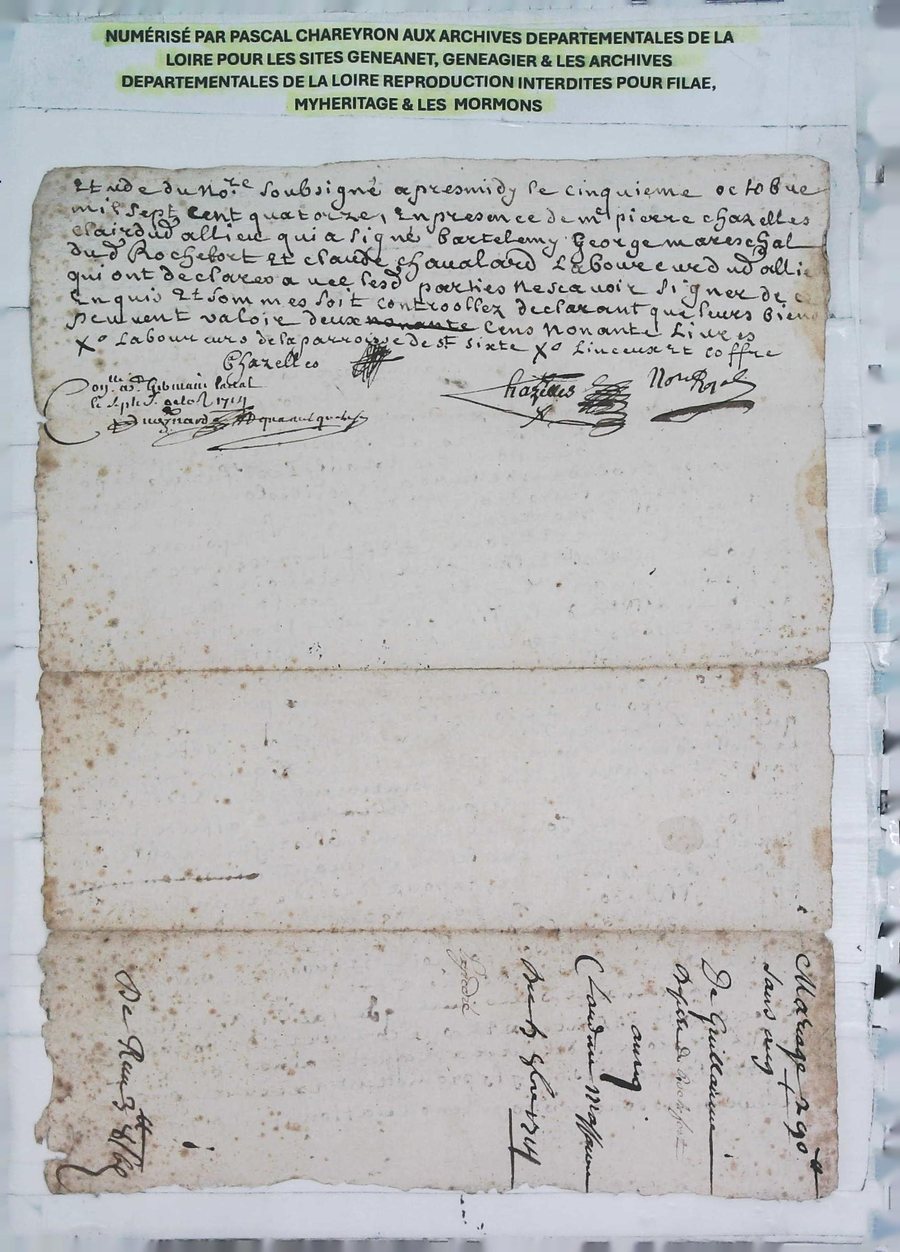 NUMÉRISÉ PAR PASCAL CHAREYRON AUX ARCHIVES DEPARTEMENTALES DE LA
LOIRE POUR LES SITES GENEANET, GENEAGIER & LES ARCHIVES
DEPARTEMENTALES DE LA LOIRE REPRODUCTION INTERDITES POUR FILAE,
MYHERITAGE & LES MORMONS
Etude du No.re Soubsigné apresmidy le cinquieme octobue
mil sept cent quatorze, En presence de mr pierre chazelles
clairdud allieu qui a signé bartelemy George mareschal
dud Rochefort Et claude chaualard Laboureurdud allie
qui ont declares auec lesd parties nescauoir signer de
Enquis Et sommes soit controollez declarant que leurs biens
peuuent valoir deux nonante Cens Nonante Liures
Xo Laboureurs de la parroisse de st sixte Xo Linceux Et coffre
Chazelles
a St Germain Laval
le sept octo 1714
Chazelles
Mariage 290
sans
De Guillaume
de Rochefort
auec
Claudine
Du 5 8bre 1714
Expedié